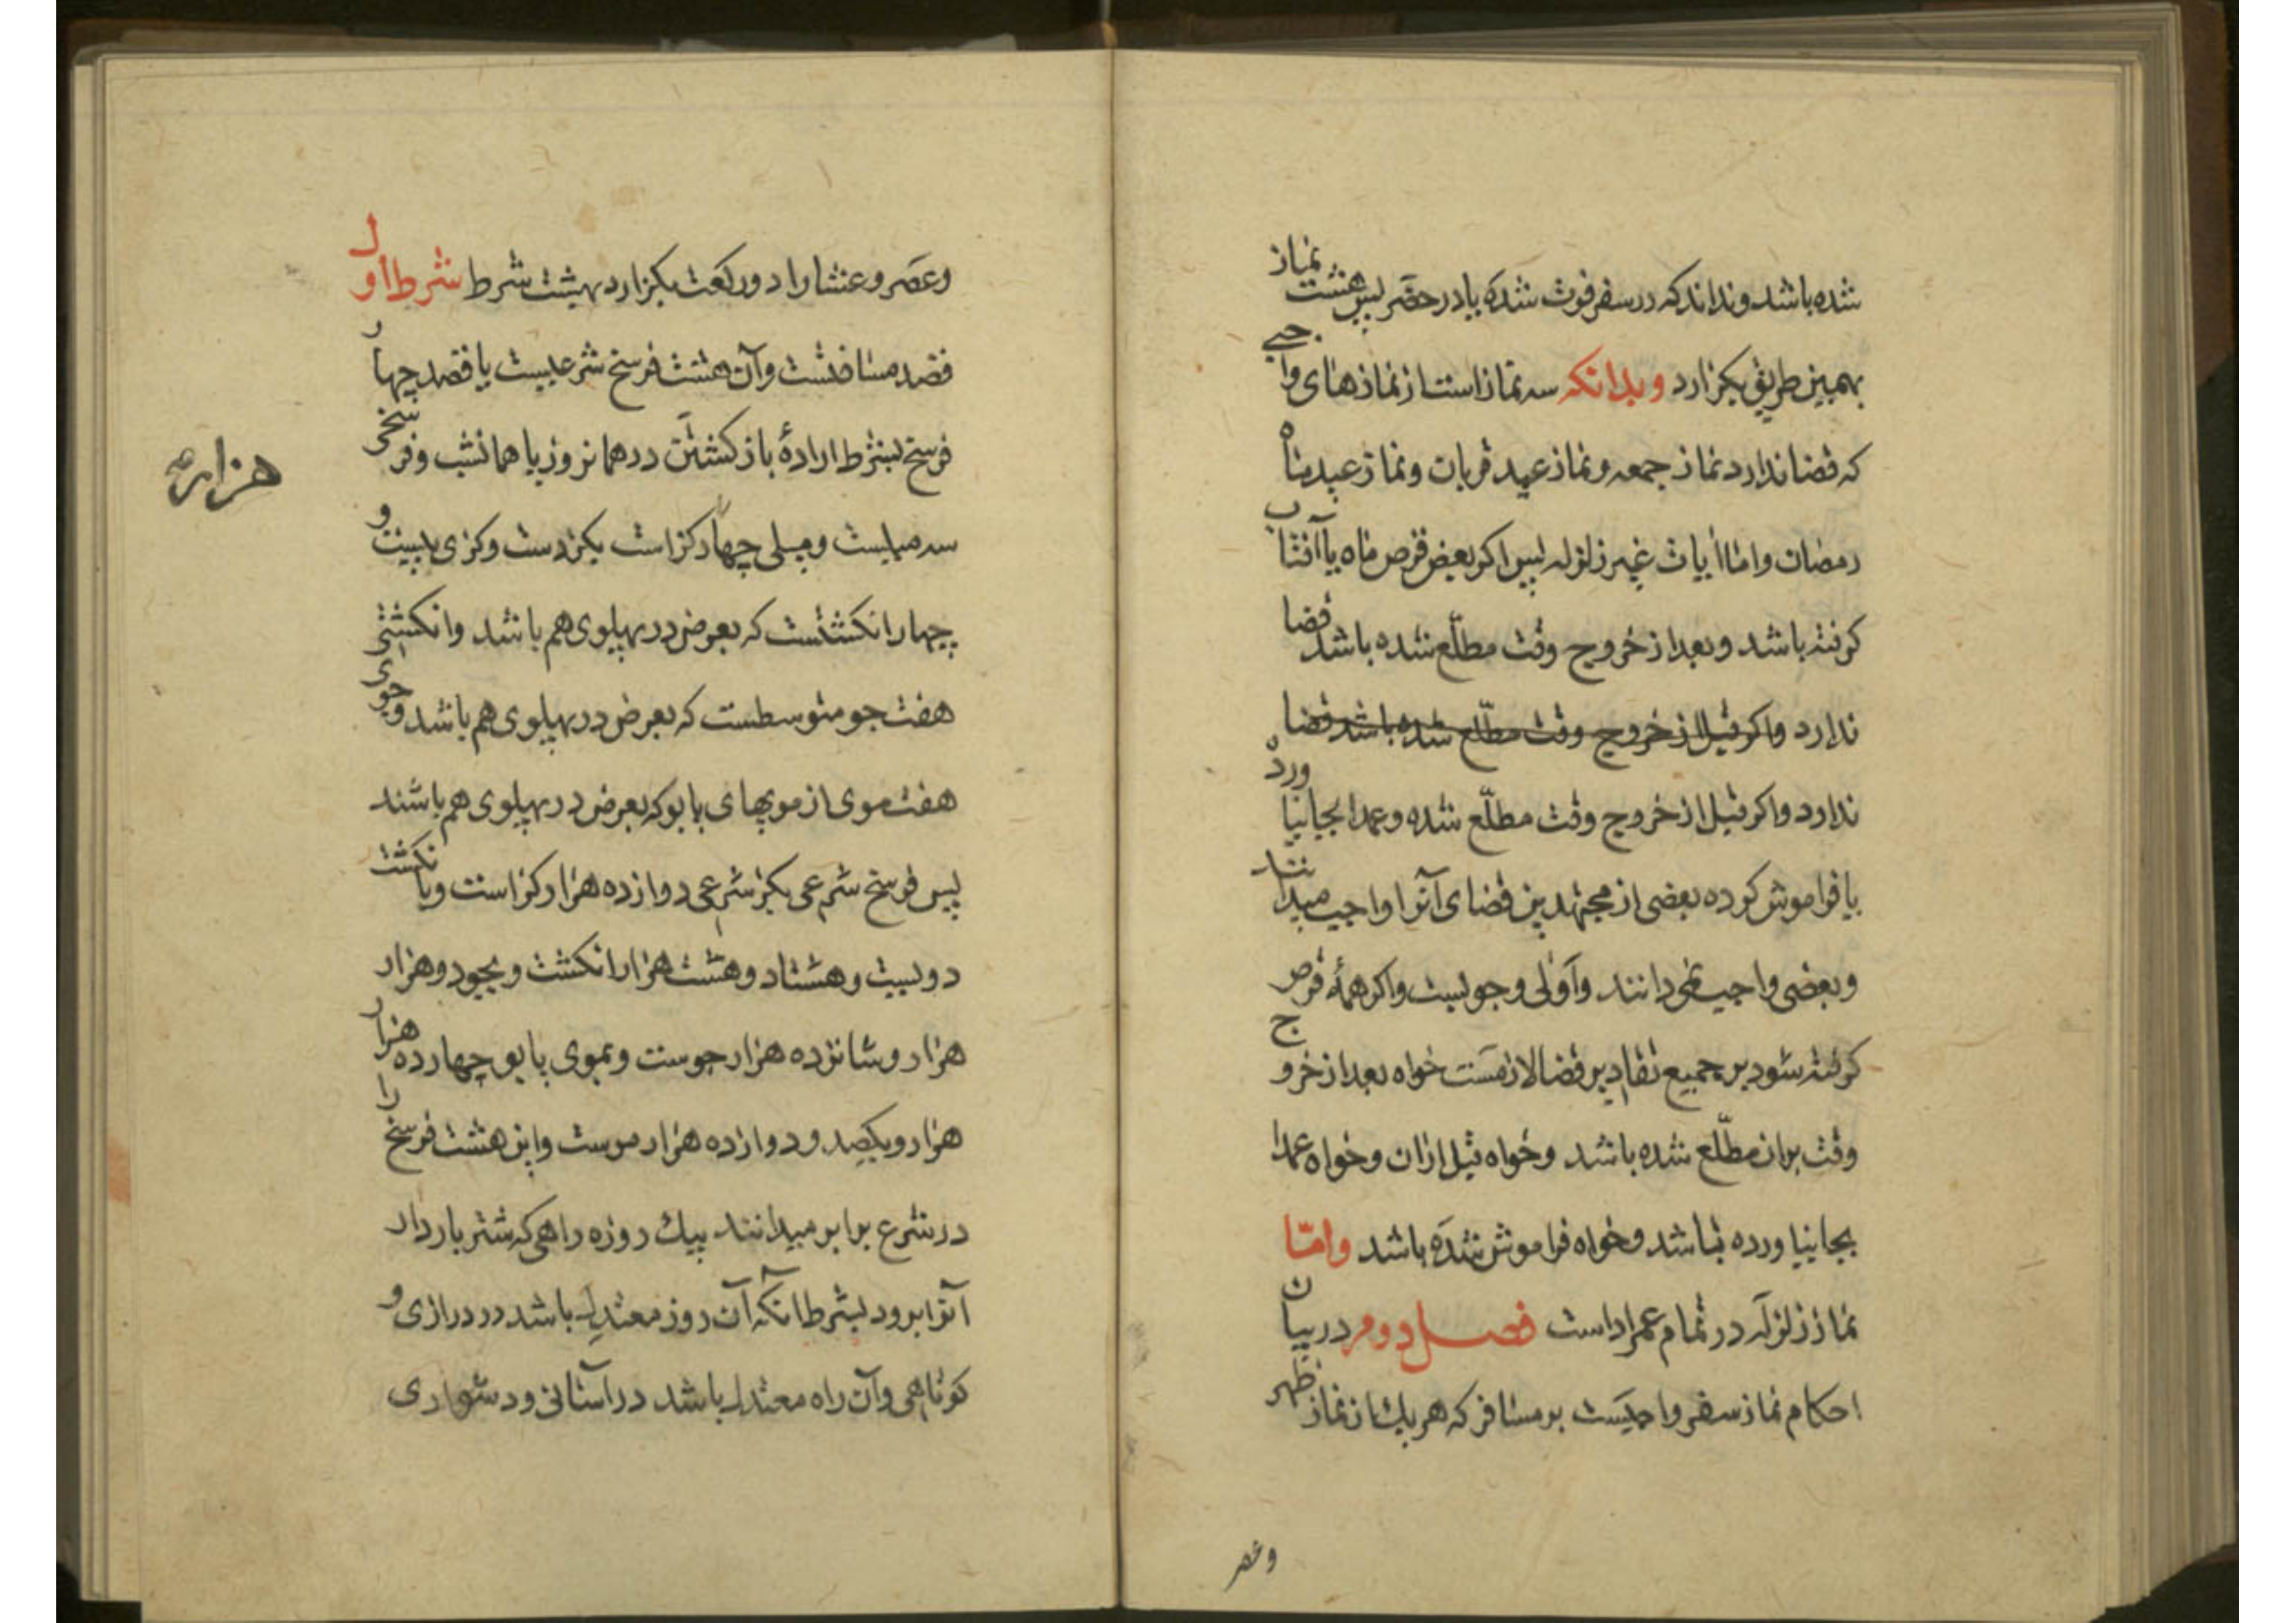 شده باشد و نداند که در سفر فوت شده یا در حضر پس هشت نماز
بهمین طریق بکزارد و بدانکه سه نماز است از نمازهای واجبی
که قضا ندارد نماز جمعه و نماز عید قربان و نماز عید ماه
رمضان و اما ایات غیر زلزله پس اکر بعض قرص ماه یا آفتاب
کرفته باشد و بعد از خروج وقت مطلّع شده باشد قضا
ندارد واکر قبل از خروج وقت مطلّع شده باشد قضا
ندارد واکر قبل از خروج وقت مطلّع شده و عمدا بجا نیاورده
یا فراموش کرده بعضی از مجتهدین قضای آنرا واجب میدانند
و بعضی واجب نمی دانند و آولی وجوبست واکر همهٔ قرص
کرفته شود بر جمیع تقادیر قضا لازمست خواه بعد از خروج
وقت بران مطلّع شده باشد و خواه قبل ازان و خواه عمدا
بجا نیاورده باشد و خواه فراموش شده باشد وامّا
نماز زلزله در تمام عمر اداست فصل دوم در بیان
احکام نماز سفر واجبست بر مسافر که هر یک از نماز ظهر
وعصر
وعصر و عشا را دو رکعت بکزارد بهشت شرط شرط اول
قصد مسافتست وآن هشت فرسخ شرعیست یا قصد چهار
فرسخ بشرط ارادهٔ باز کشتن در همانروز یا همانشب و فرسخی
سه میلیست و میلی چهار کز است بکز دست و کزی بیست و
چهار انکشتست که بعرض در پهلوی هم باشد وانکشتی
هفت جو متوسطست که بعرض در پهلوی هم باشد وجوی
هفت موی از مویهای یابو که بعرض در پهلوی هم باشند
پس فرسخ شرعی بکز شرعی دوازده هزار کز است وبانکشت
دویست و هشتاد و هشت هزار انکشت و بجو دو هزار
هزار و شانزده هزار جوست و بموی یابو چهارده هزار
هزار و یکصد و دوازده هزار موست واین هشت فرسخ را
در شرع برابر میدانند بیک روزه راهی که شتر باردار
آنرا برود بشرط انکه آن روز معتدل باشد در درازی و
کوتاهی وآن راه معتدل باشد در آسانی و دشواری
هزار